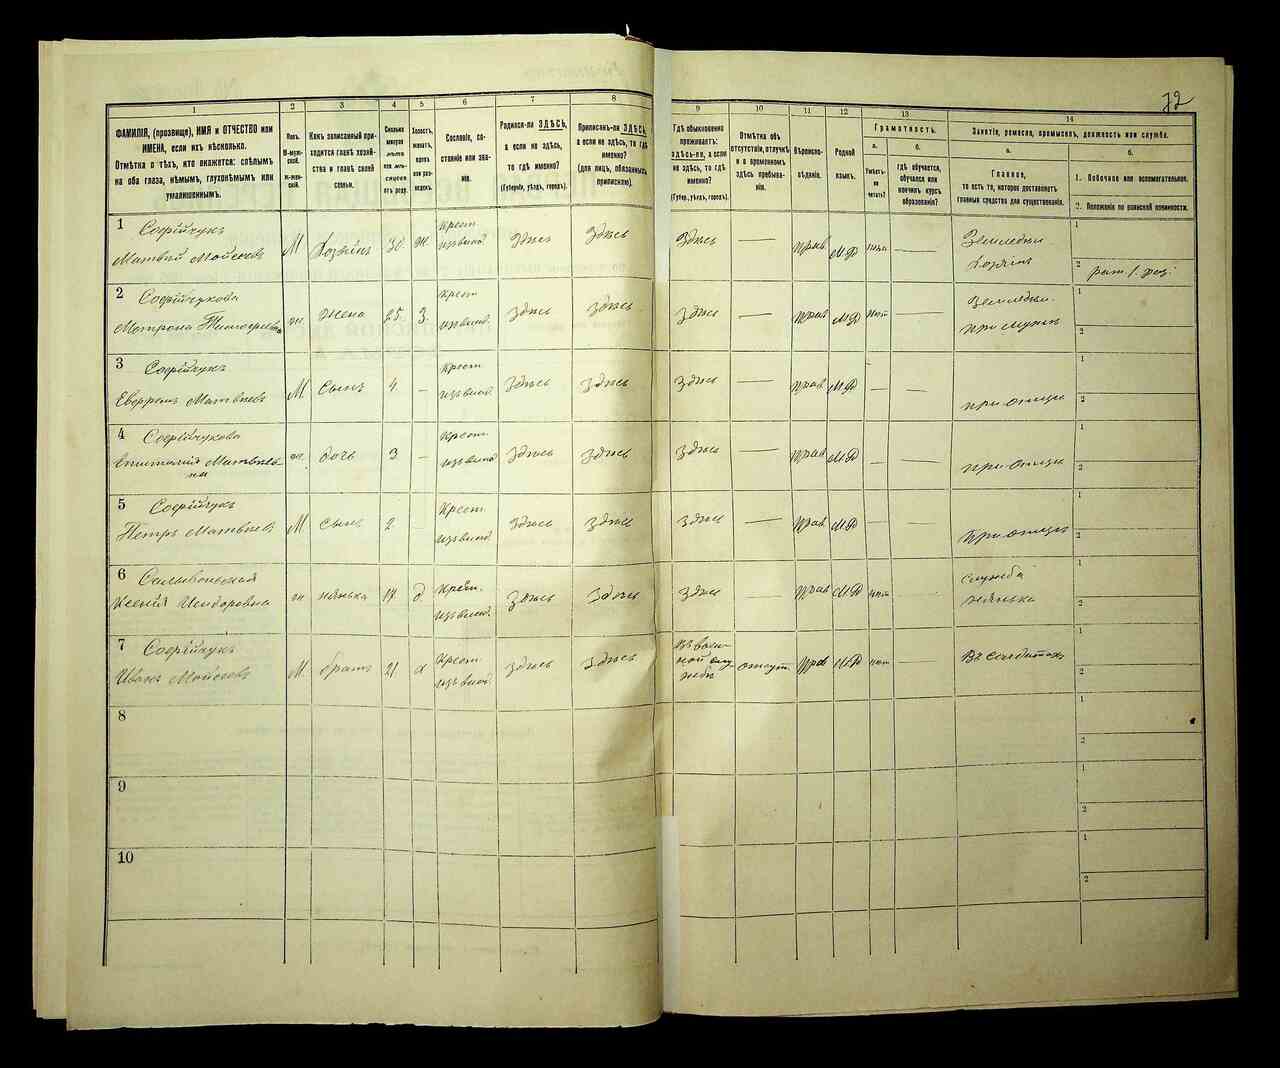 72
1
2
3
4
5
6
7
8
9
10
11
12
13
14
ФАМИЛІЯ, (прозвище), ИМЯ и ОТЧЕСТВО или
ИМЕНА, если ихъ нѣсколько.
Отмѣтка о тѣхъ, кто окажется: слѣпымъ
на оба глаза, нѣмымъ, глухонѣмымъ или
умалишеннымъ.
Полъ.
М-мужской.
Ж-женскій.
Какъ записанный приходится главѣ хозяйства и главѣ своей
семьи.
Сколько
минуло
лѣтъ
или мѣсяцевъ
отъ роду.
Холостъ,
женатъ,
вдовъ
или разведенъ.
Сословіе, состояніе или званіе.
Родился-ли ЗДѢСЬ,
а если не здѣсь,
то гдѣ именно?
(Губернія, уѣздъ, городъ).
Приписанъ-ли ЗДѢСЬ,
а если не здѣсь, то гдѣ
именно?
(для лицъ, обязанныхъ
припискою).
Гдѣ обыкновенно
проживаетъ:
здѣсь-ли, а если
не здѣсь, то гдѣ
именно?
(Губер., уѣздъ, городъ).
Отмѣтка объ
отсутствіи, отлучкѣ
и о временномъ
здѣсь пребываніи.
Вѣроисповѣданіе.
Родной
языкъ.
Грамотность.
а.
Умѣетъ-ли
читать?
б.
Гдѣ обучается,
обучался или
кончилъ курсъ
образованія?
Занятіе, ремесло, промыселъ, должность или служба.
а.
Главное,
то есть то, которое доставляетъ
главныя средства для существованія.
б.
1. Побочное или вспомогательное.
2. Положеніе по воинской повинности.
1 Софійчукъ
Матвѣй Моисеевъ М Хозяинъ 30 ж. Крест. изъ влад. Здѣсь Здѣсь Здѣсь — Прав М.Р — Земледѣл. Хозяинъ 1 2
2 Софійчукова
Мотрона ж. жена 25 З. Крест. изъ влад. Здѣсь Здѣсь Здѣсь — Прав М.Р нѣт — Земледѣл. при мужѣ 1 2
3 Софійчукъ
Матвѣевъ М Сынъ 4 — Крест. изъ влад. Здѣсь Здѣсь Здѣсь — Прав М.Р — — при отцѣ 1 2
4 Софійчукова
ж. дочь 3 — Крест. изъ влад. Здѣсь Здѣсь Здѣсь — Прав М.Р — — при отцѣ 1 2
5 Софійчукъ
Петръ Матвѣевъ М Сынъ 2 Крест. изъ влад. Здѣсь Здѣсь Здѣсь — Прав М.Р — — При отцѣ 1 2
6
Ксенія Исидоровна ж нянька д Крест. изъ влад. Здѣсь Здѣсь Здѣсь — Прав М.Р нѣт — служба нянька 1 2
7 Софійчукъ
Иванъ Моисеевъ М. братъ 21 х Крест. изъ влад. Здѣсь Здѣсь Въ военной службѣ отсут. Прав М.Р нѣт — Въ солдатахъ 1 2
8 1 2
9 1 2
10 1 2